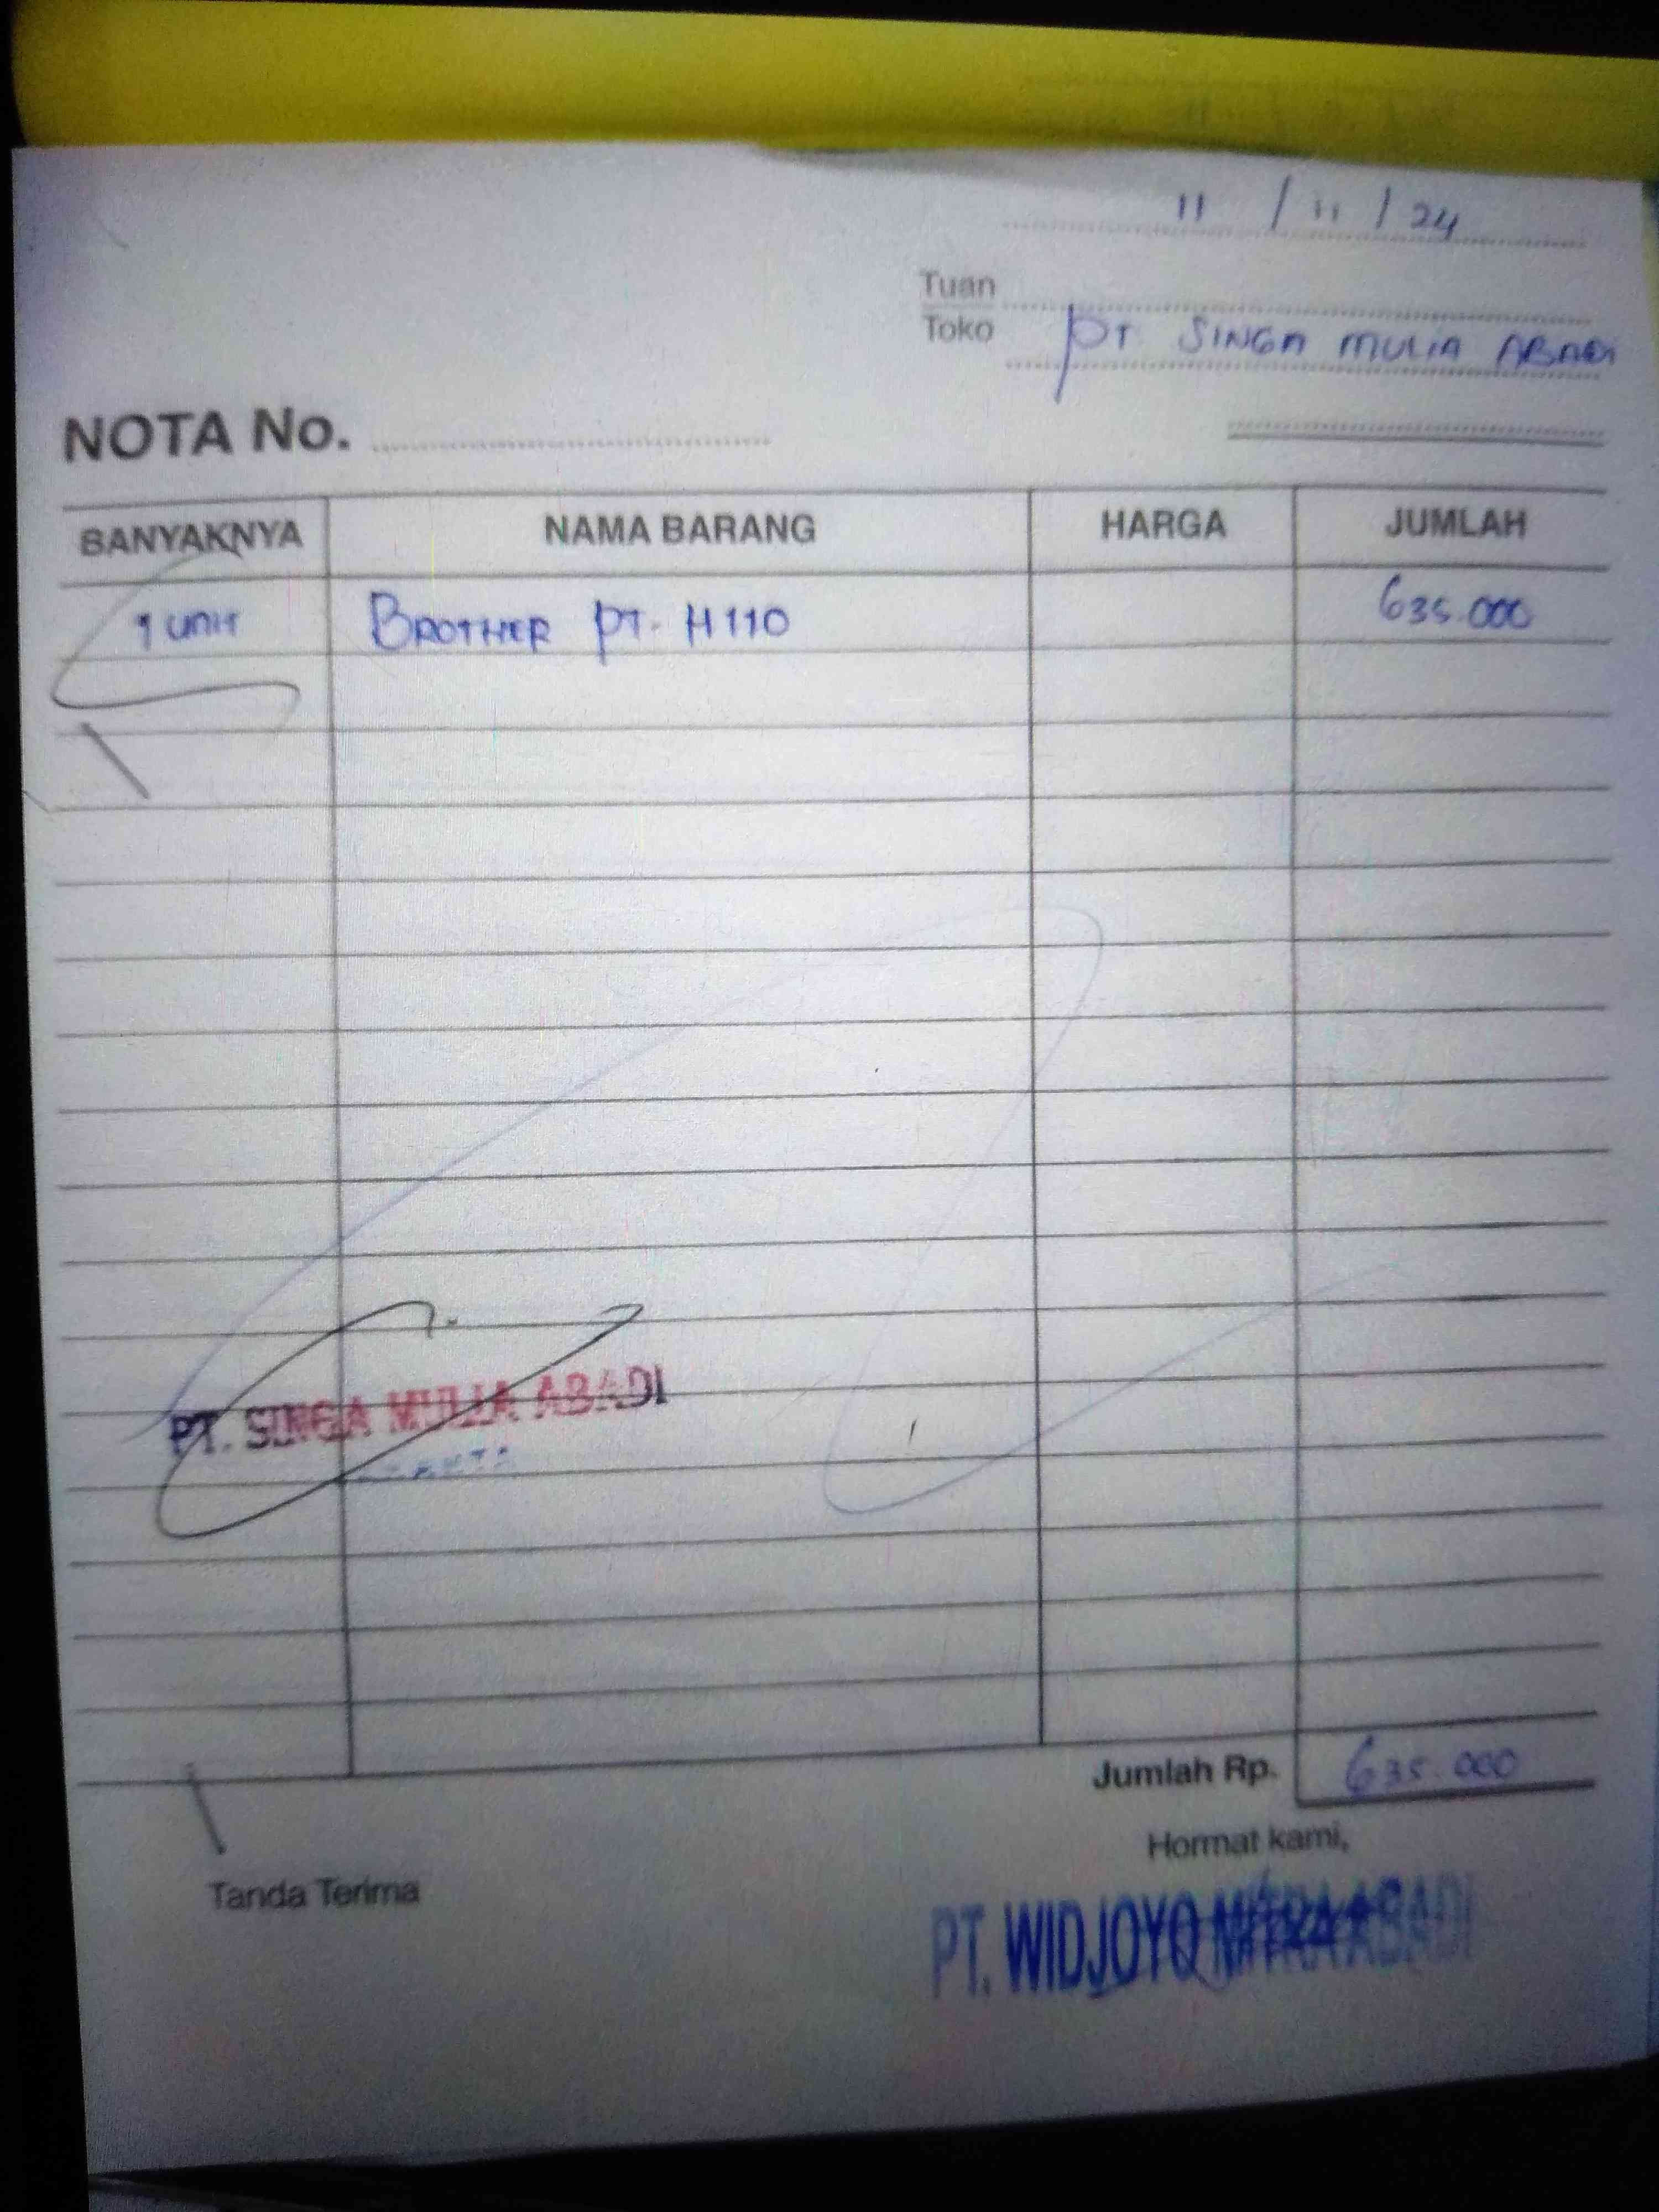 11 / 11 / 24
Tuan
Toko PT SINGA MULIA ABADI
NOTA No.
BANYAKNYA NAMA BARANG HARGA JUMLAH
1 UNIT BROTHER PT. H110 635.000
PT. SINGA MULIA ABADI
Jumlah Rp. 635.000
Hormat kami,
Tanda Terima
PT. WIDJOYO MITRA ABADI